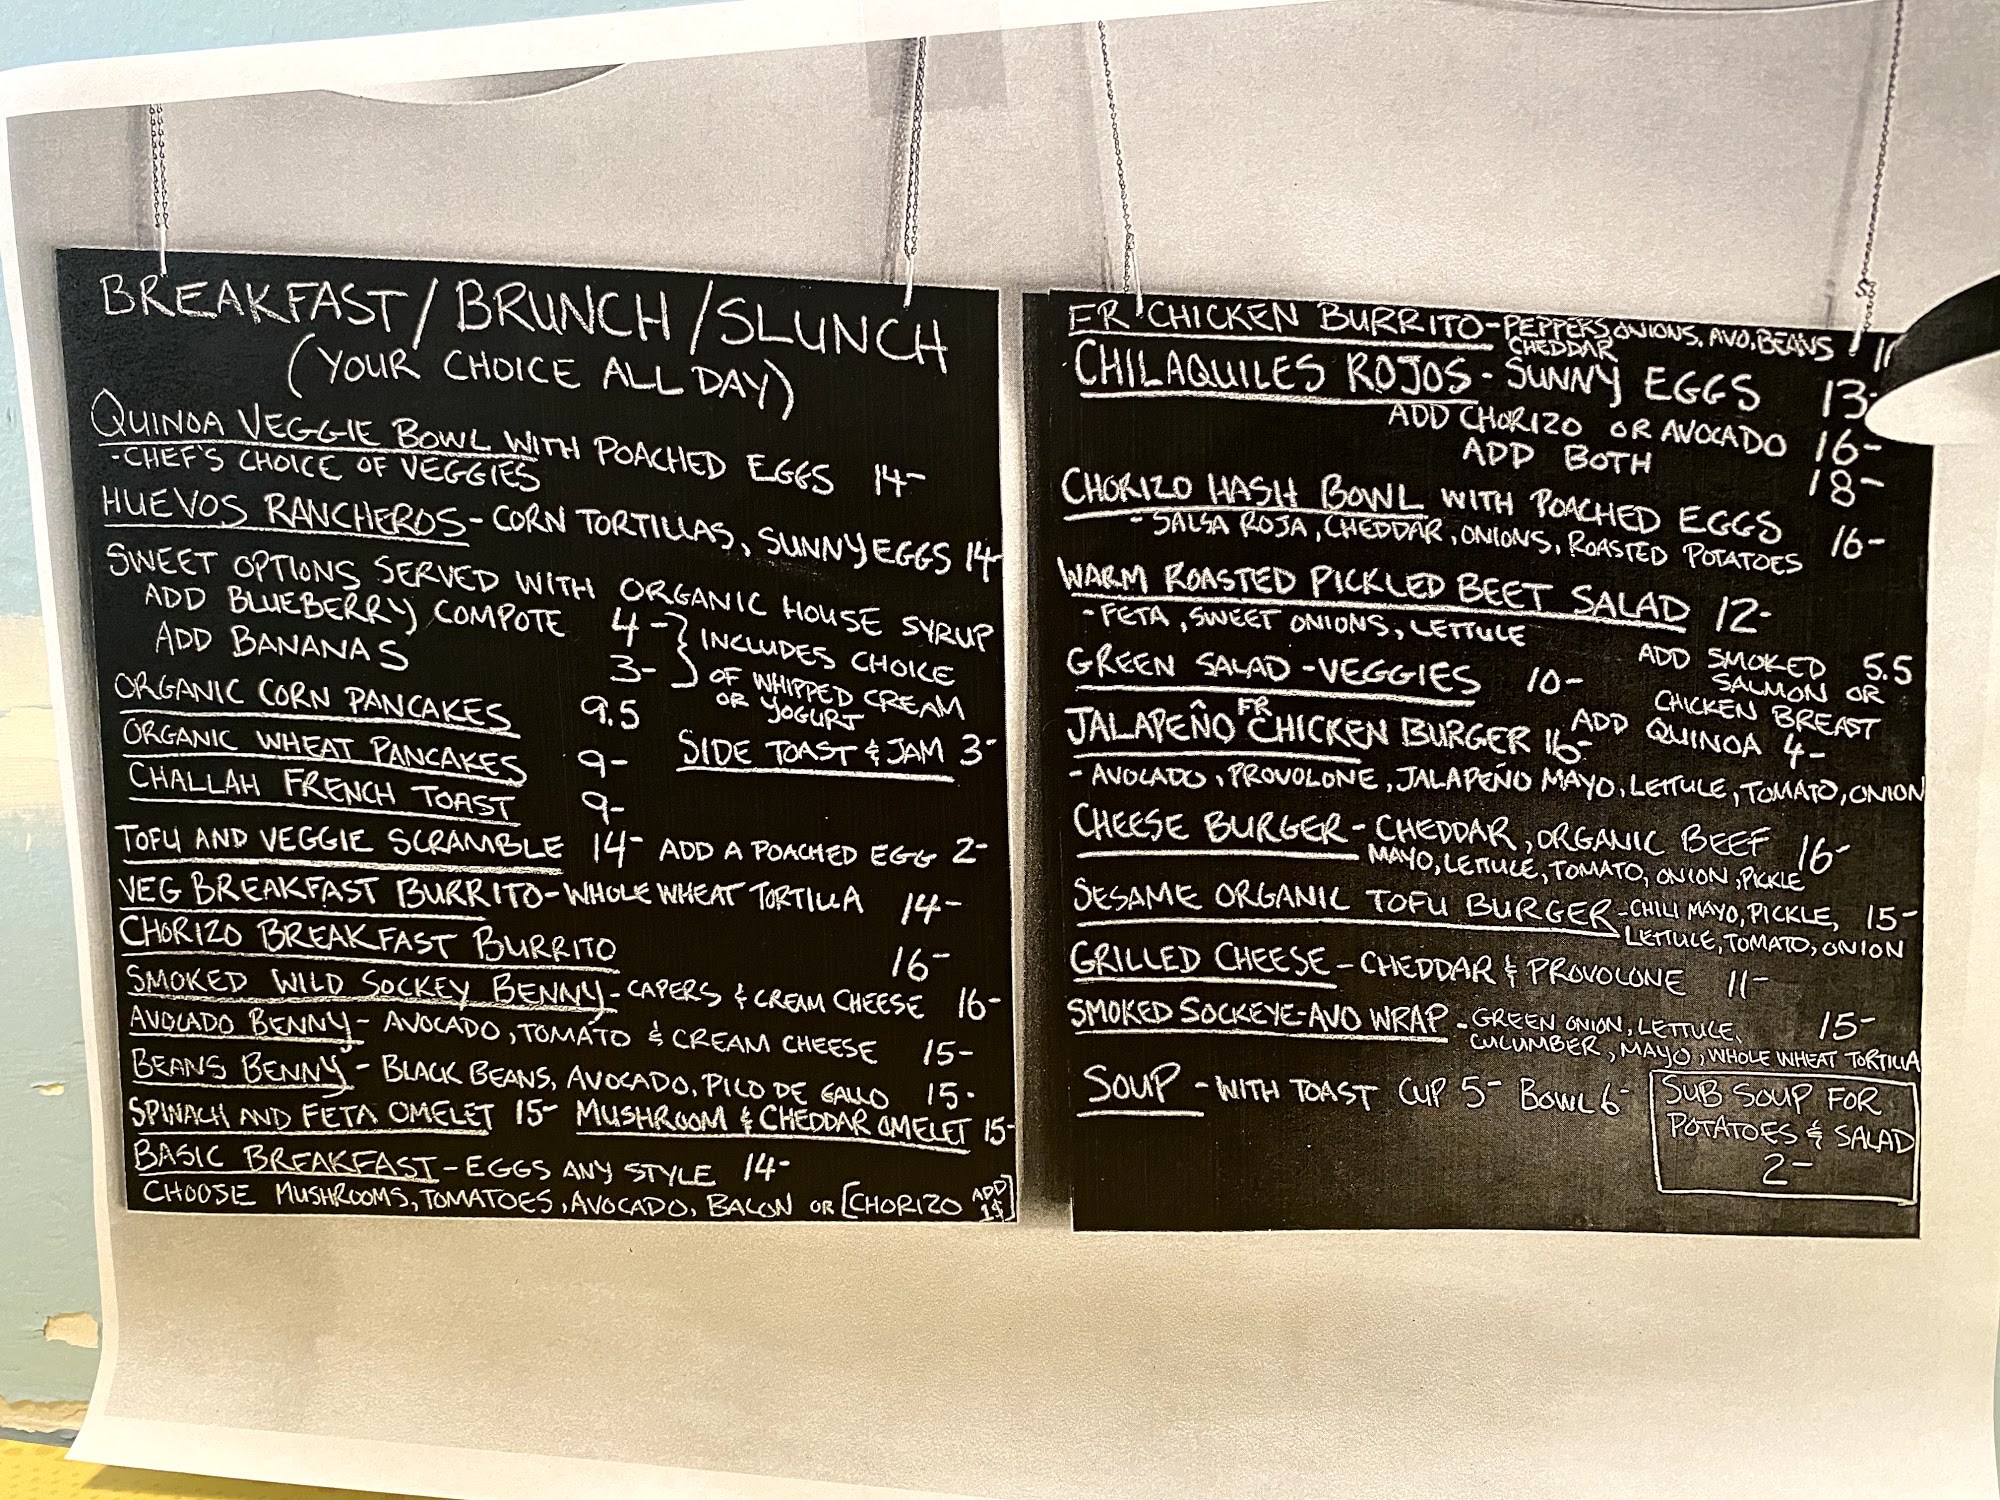 BREAKFAST/BRUNCH/SLUNCH
(YOUR CHOICE ALL DAY)
QUINOA VEGGIE BOWL WITH POACHED EGGS 14-
-CHEF'S CHOICE OF VEGGIES
HUEVOS RANCHEROS-CORN TORTILLAS, SUNNY EGGS 14-
SWEET OPTIONS SERVED WITH ORGANIC HOUSE SYRUP
ADD BLUEBERRY COMPOTE 4-
ADD BANANAS 3-
INCLUDES CHOICE
OF WHIPPED CREAM
OR YOGURT
ORGANIC CORN PANCAKES 9.5
ORGANIC WHEAT PANCAKES 9-
SIDE TOAST & JAM 3-
CHALLAH FRENCH TOAST 9-
TOFU AND VEGGIE SCRAMBLE 14- ADD A POACHED EGG 2-
VEG BREAKFAST BURRITO-WHOLE WHEAT TORTILLA 14-
CHORIZO BREAKFAST BURRITO 16-
SMOKED WILD SOCKEY BENNY-CAPERS & CREAM CHEESE 16-
AVOCADO BENNY-AVOCADO, TOMATO & CREAM CHEESE 15-
BEANS BENNY-BLACK BEANS, AVOCADO, PICO DE GALLO 15-
SPINACH AND FETA OMELET 15- MUSHROOM & CHEDDAR OMELET 15-
BASIC BREAKFAST-EGGS ANY STYLE 14-
CHOOSE MUSHROOMS, TOMATOES, AVOCADO, BACON OR [CHORIZO ADD 1$]
FR CHICKEN BURRITO-PEPPERS, ONIONS, AVO, BEANS
CHEDDAR
CHILAQUILES ROJOS-SUNNY EGGS 13-
ADD CHORIZO OR AVOCADO 16-
ADD BOTH 18-
CHORIZO HASH BOWL WITH POACHED EGGS 16-
-SALSA ROJA, CHEDDAR, ONIONS, ROASTED POTATOES
WARM ROASTED PICKLED BEET SALAD 12-
-FETA, SWEET ONIONS, LETTUCE
GREEN SALAD-VEGGIES 10-
ADD SMOKED 5.5
SALMON OR
CHICKEN BREAST
ADD QUINOA 4-
JALAPEÑO FR CHICKEN BURGER 16-
-AVOCADO, PROVOLONE, JALAPEÑO MAYO, LETTUCE, TOMATO, ONION
CHEESE BURGER-CHEDDAR, ORGANIC BEEF 16-
MAYO, LETTUCE, TOMATO, ONION, PICKLE
SESAME ORGANIC TOFU BURGER-CHILI MAYO, PICKLE, 15-
LETTUCE, TOMATO, ONION
GRILLED CHEESE-CHEDDAR & PROVOLONE 11-
SMOKED SOCKEYE-AVO WRAP-GREEN ONION, LETTUCE, 15-
CUCUMBER, MAYO, WHOLE WHEAT TORTILLA
SOUP-WITH TOAST CUP 5- BOWL 6-
SUB SOUP FOR
POTATOES & SALAD
2-